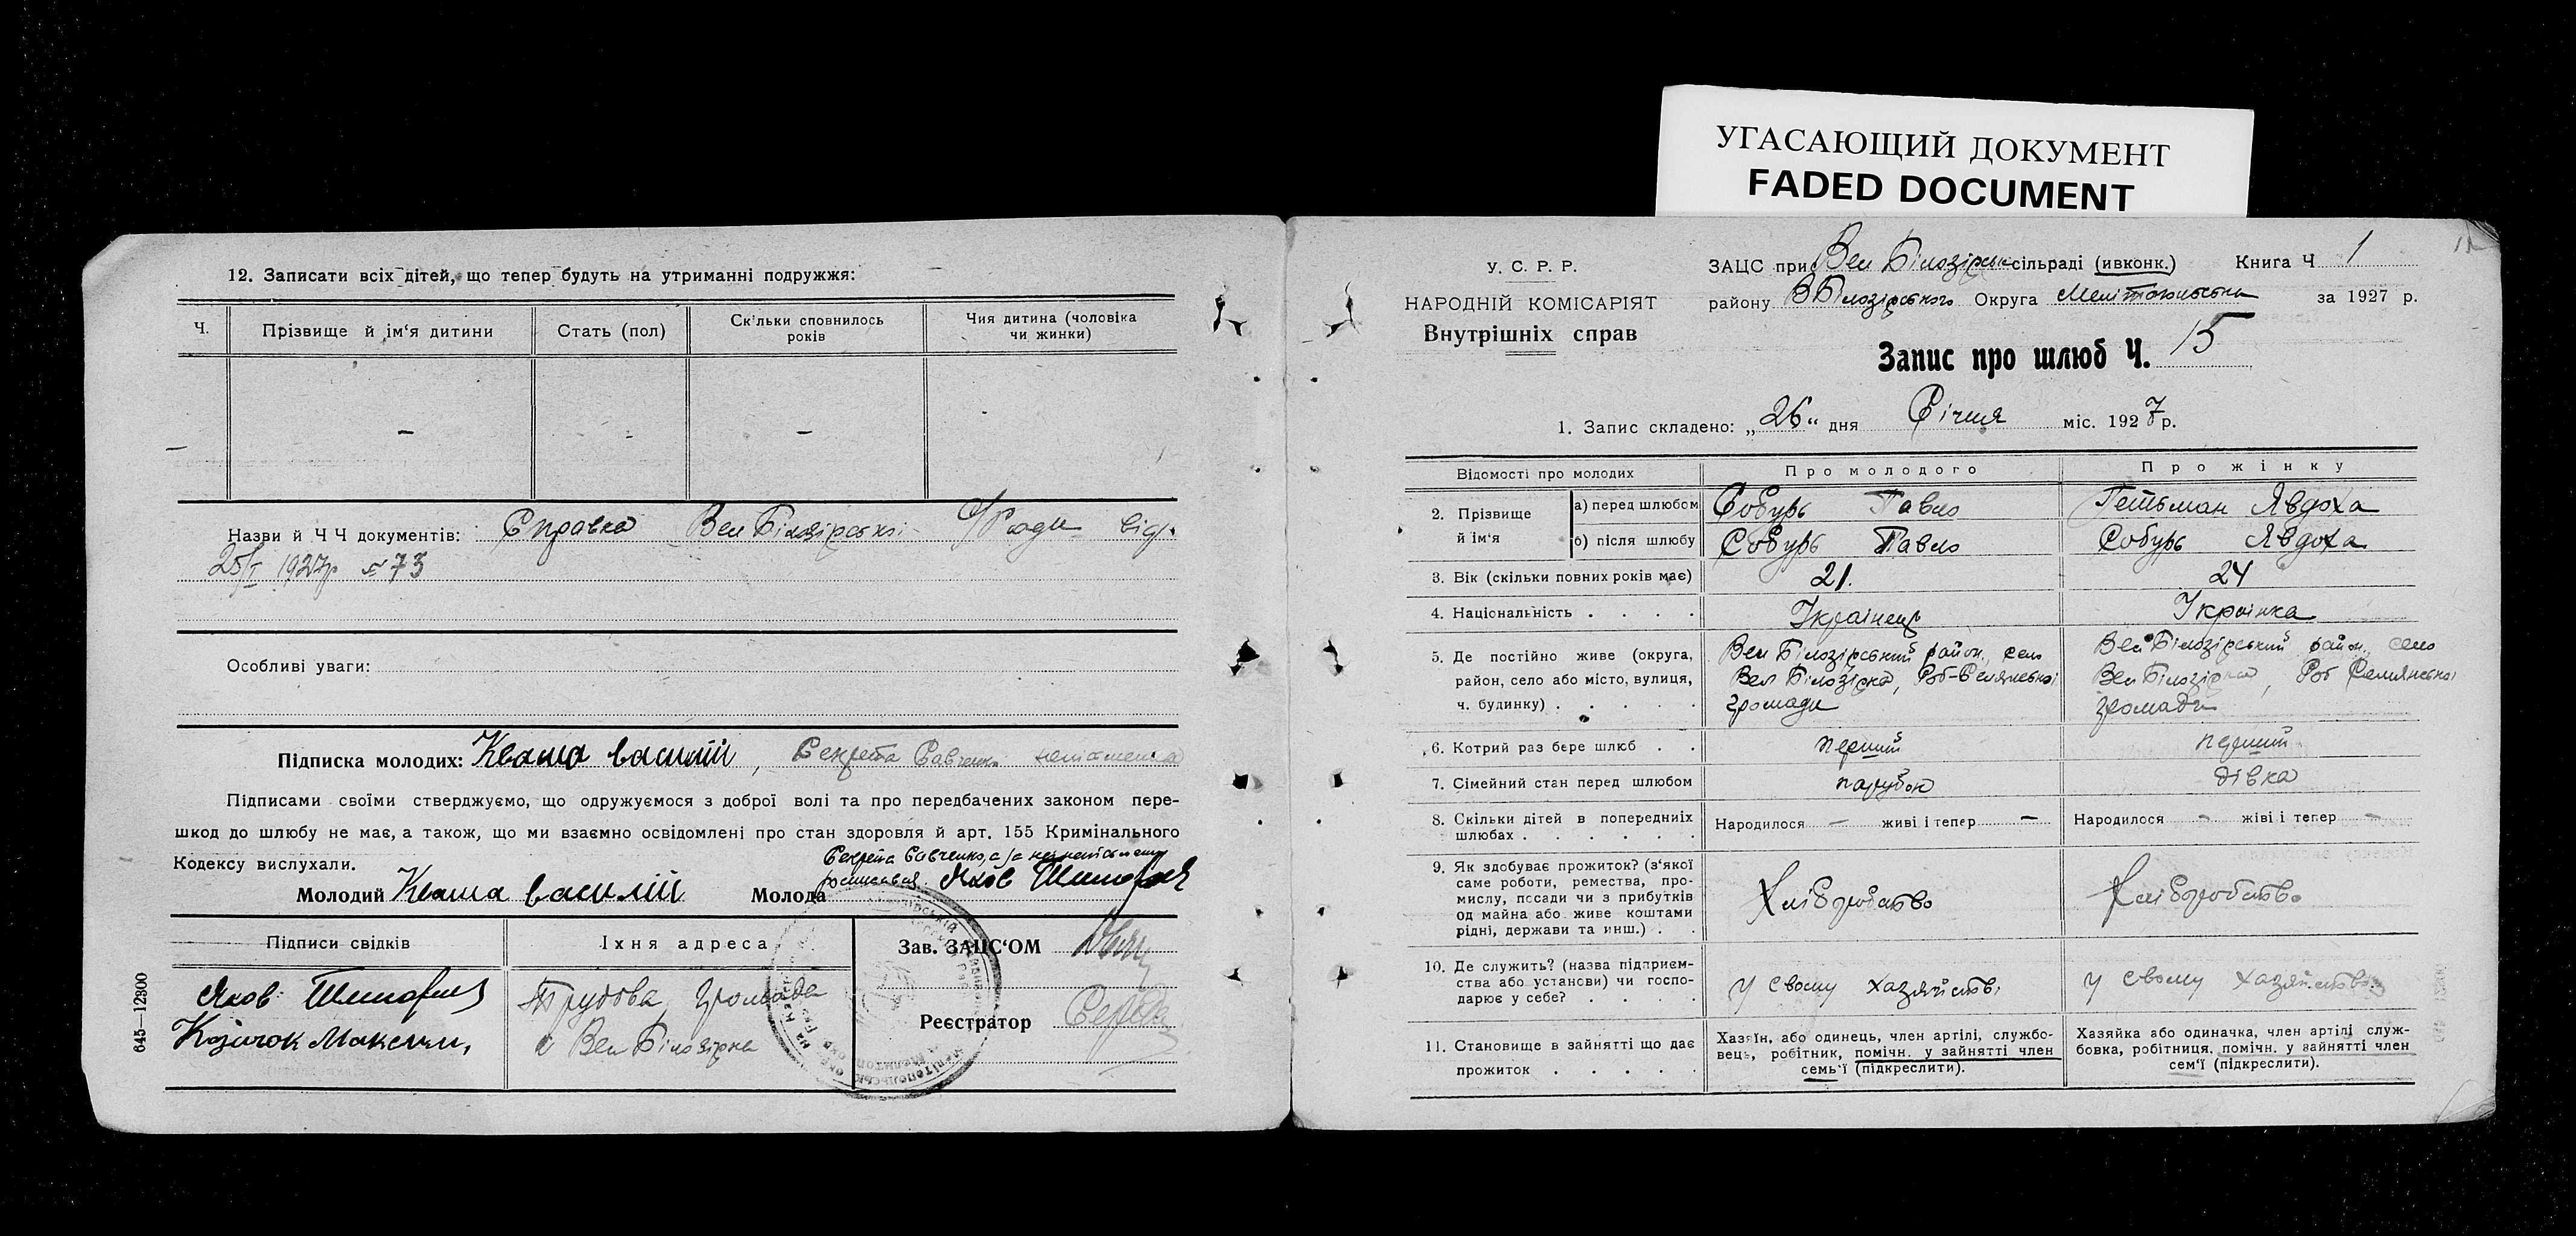 УГАСАЮЩИЙ ДОКУМЕНТ
FADED DOCUMENT
12. Записати всіх дітей, що тепер будуть на утриманні подружжя:
Ч.
Прізвище й ім'я дитини
Стать (пол)
Скільки сповнилось років
Чия дитина (чоловіка чи жинки)
– - –
Назви й Ч Ч документів: Справка Вел Білозірської С/Ради від.
25/I 1927р № 73
Особливі уваги:
Підписка молодих: Кваша Василій, Секрета Савченко неписьменна
Підписами своїми стверджуємо, що одружуємося з доброї волі та про передбачених законом пере-
шкод до шлюбу не має, а також, що ми взаємно освідомлені про стан здоровля й арт. 155 Кримінального
Кодексу вислухали.
Молодий Кваша Василій Молода
Яков
Підписи свідків
Їхня адреса
Зав. ЗАЦС'ОМ
Яков
Козачок Максим,
Трудова громада
с Вел Білозірка
Реєстратор Середа
645—12300
У. С. Р. Р.
НАРОДНІЙ КОМІСАРІЯТ
Внутрішніх справ
ЗАЦС при Вел Білозірськ сільраді (ивконк.) Книга Ч 1
району ВБілозірського Округа Мелітопольська за 1927 р.
Запис про шлюб Ч. 15
1. Запис складено: „26“ дня Січня міс. 1927 р.
Відомості про молодих
Про молодого
Про жінку
2. Прізвище й ім'я
а) перед шлюбом Собурь Павло Гетьман Явдоха
б) після шлюбу Собурь Павло Собурь Явдоха
3. Вік (скільки повних років має) 21. 24
4. Національність . . . . Українець Українка
5. Де постійно живе (округа, район, село або місто, вулиця, ч. будинку) . . . . .
Вел Білозірський район, село
Вел Білозірка, Роб-Селянської
громади
Вел Білозірський район, село
Вел Білозірка, Роб Селянської
громади
6. Котрий раз бере шлюб . . перший перший
7. Сімейний стан перед шлюбом парубок дівка
8. Скільки дітей в попередниіх шлюбах . . . . . .
Народилося – живі і тепер –
Народилося – жіві і тепер –
9. Як здобуває прожиток? (з'якої
саме роботи, ремества, про-
мислу, посади чи з прибутків
од майна або живе коштами
рідні, держави та инш.) . .
Хліборобство
Хліборобство
10. Де служить? (назва підприєм-
ства або установи) чи госпо-
дарює у себе? . . . .
у свому хазяйстві
у свому хазяйстві
11. Становище в зайнятті що дає
прожиток . . . . .
Хазяїн, або одинець, член артілі, службо-
вець, робітник, помічн. у зайнятті член
семь'ї (підкреслити).
Хазяйка або одиначка, член артілі служ-
бовка, робітниця, помічн. у зайнятті член
сем'ї (підкреслити).